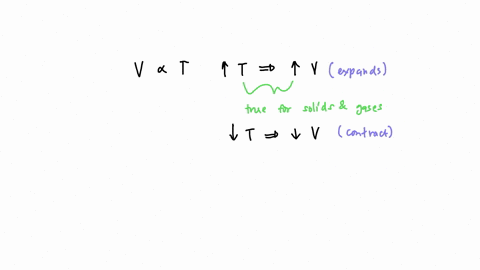 V ∝ T ↑ T ⇒ ↑ V (expands)
true for solids & gases
↓ T ⇒ ↓ V (contract)